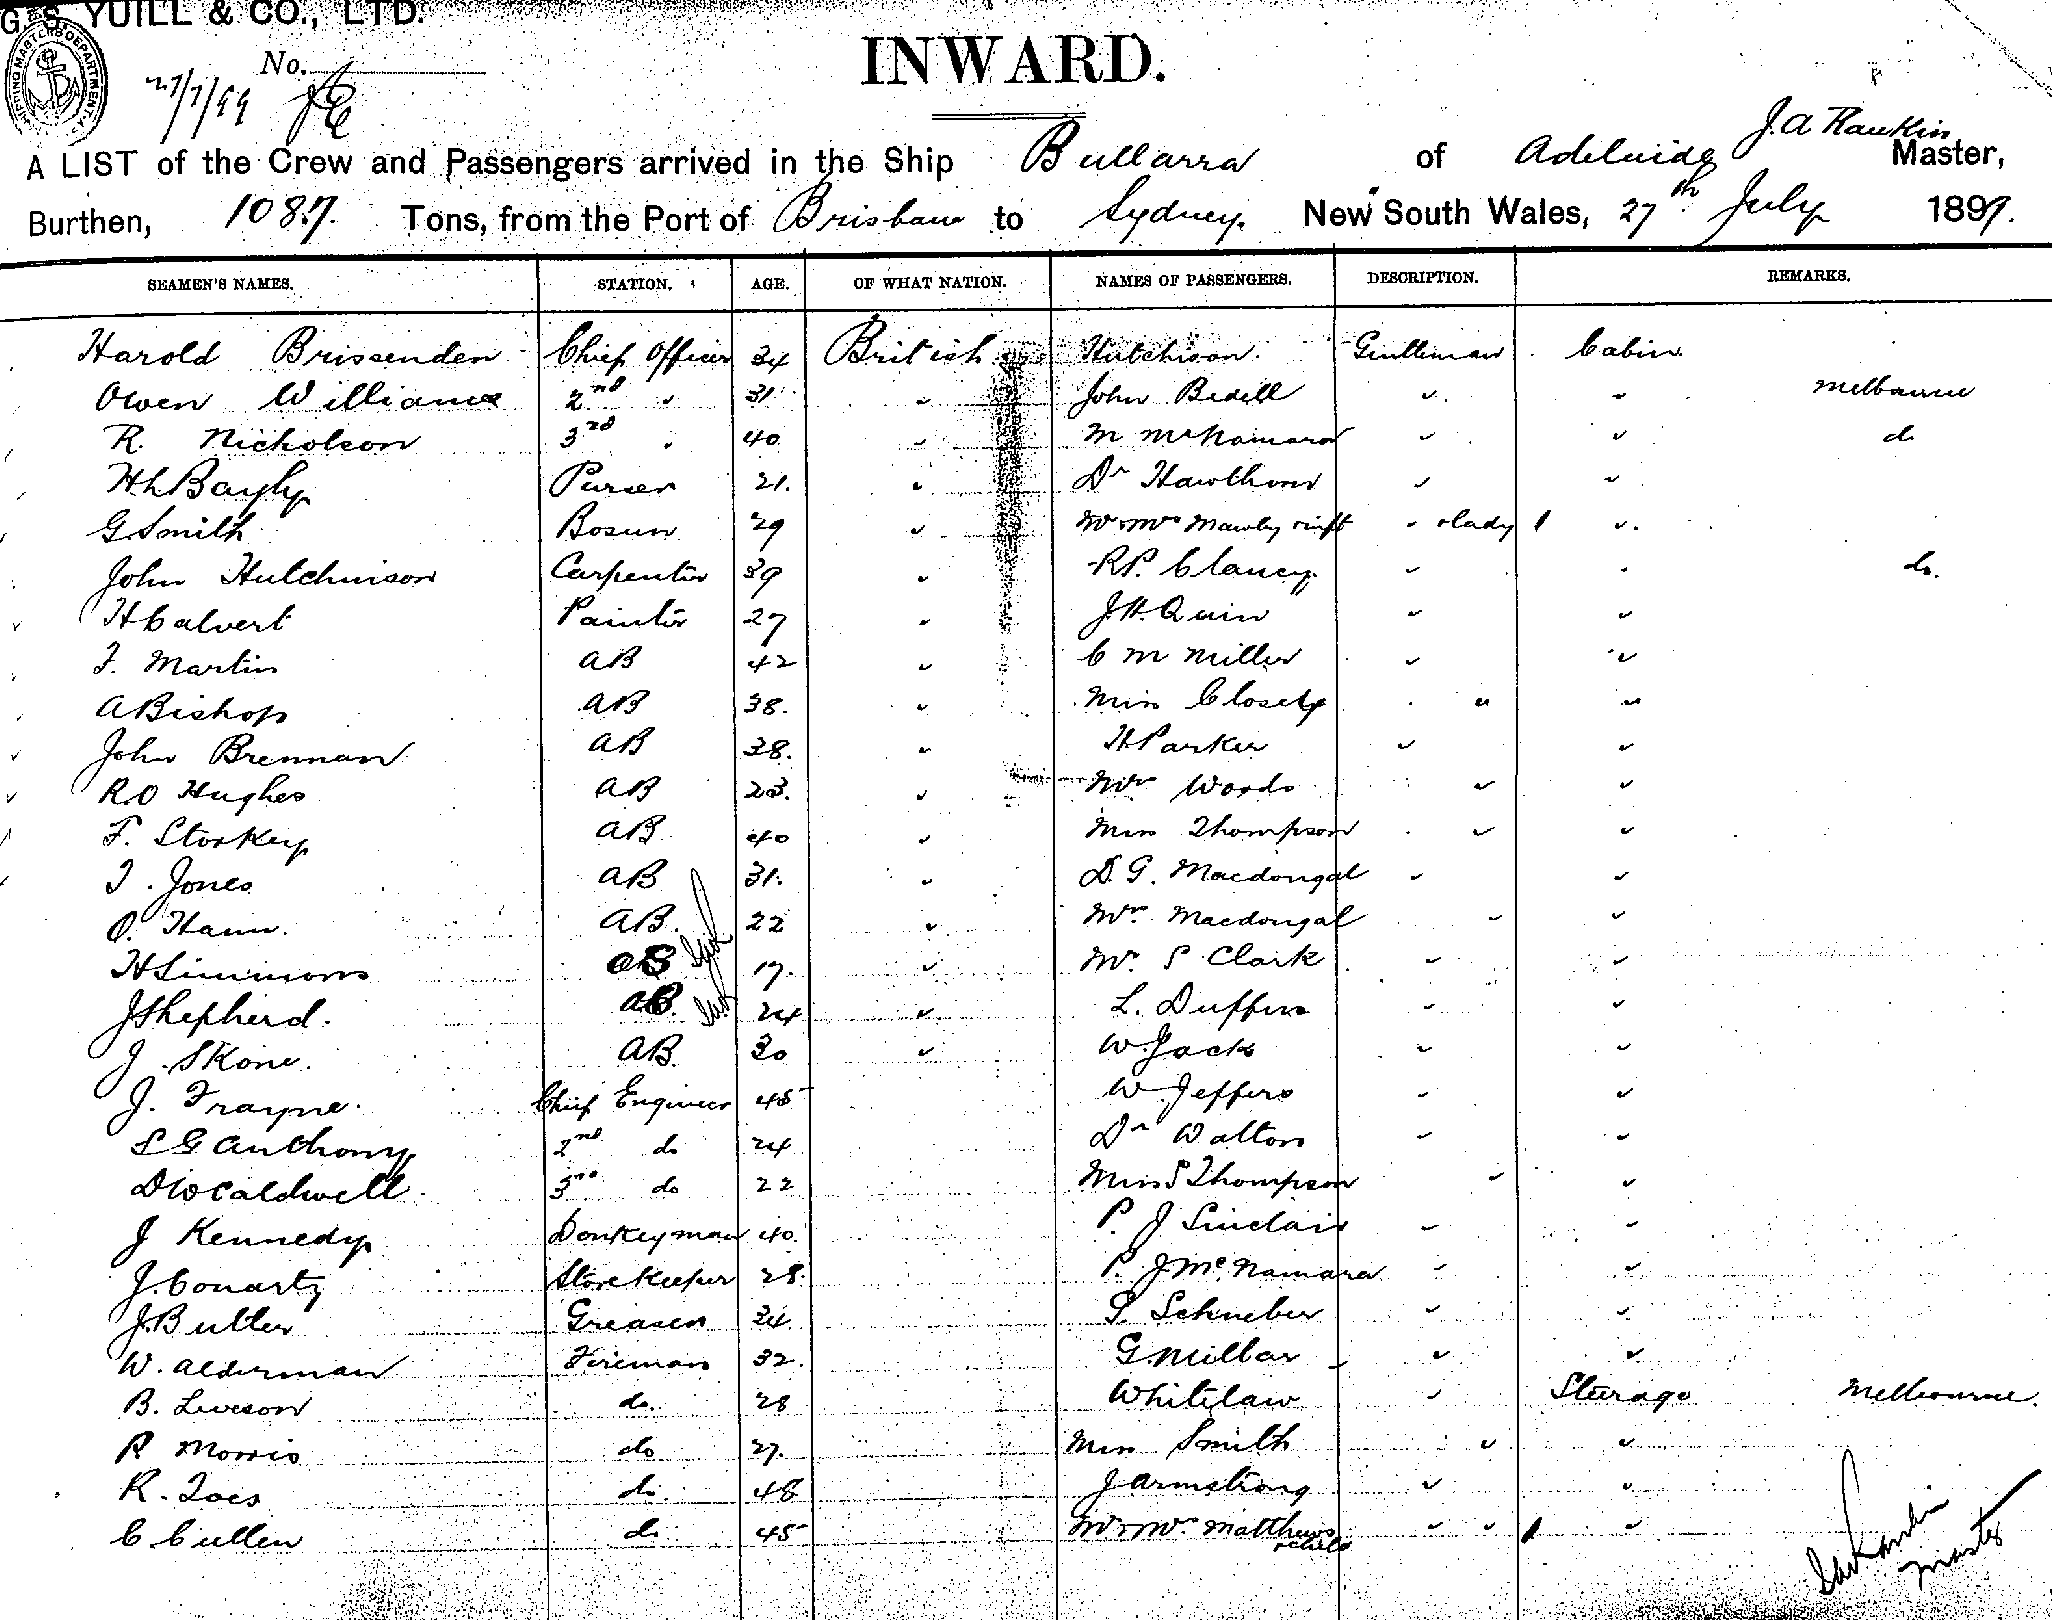 G. S. YUILL & CO., LTD.
No.
27/7/99
INWARD.
J. A Rankin
A LIST of the Crew and Passengers arrived in the Ship Bullarra of Adelaide Master,
Burthen, 1087. Tons, from the Port of Brisbane to Sydney. New South Wales, 27th July 1899.
SEAMEN'S NAMES. STATION. AGE. OF WHAT NATION. NAMES OF PASSENGERS. DESCRIPTION. REMARKS.
Harold Brissenden Chief Officer 34 British Hutchison. Gentleman Cabin
Owen Williams 2nd " 31 " John Bedell " " Melbourne
R. Nicholson 3rd " 40 " M McNamara " " do
H L Bayly Purser 21. " Dr Hawthorn " "
G Smith Bosun 29 " Mr & Mrs Mawby " & lady 1 "
John Hutchinson Carpenter 39 " R P. Clancy " " do.
H Calvert Painter 27 " J. H. Quin " "
F. Martin AB 42 " C M Miller " "
A Bishop AB 38. " Miss Closety " "
John Brennan AB 38. " H Parker " "
R O Hughes AB 23. " Mrs Woods " "
F. Storkey AB 40 " Miss Thompson " "
T. Jones AB 31. " D. G. Macdougal " "
O. Hann. AB. 22 " Mrs Macdougal " "
H Simmons OS 17. " Mr. S Clark " "
J Shepherd. 24 " L. Duffin " "
J Skone. AB. 30 " W. Jack " "
J. Trayne. Chief Engineer 45 W Jeffers " "
S G Anthony 2nd do 24 Dr Walton " "
D W Caldwell. 3rd do 22 Miss S Thompson " "
J Kennedy Donkeyman 40. P. J Sinclair " "
J. Conarty Storekeeper 28. P. J McNamara " "
J. Butler Greaser 34. S. Schneber " "
W. Alderman Fireman 32. G. Millar " "
B. Liveson do. 28 Whitelaw " Steerage Melbourne.
R Morris do 27. Miss Smith " "
R. Toes do. 48 J Armstrong " "
C Cullen do 45 Mr & Mrs Matthews & child " " 1 "
J A Rankin
Master